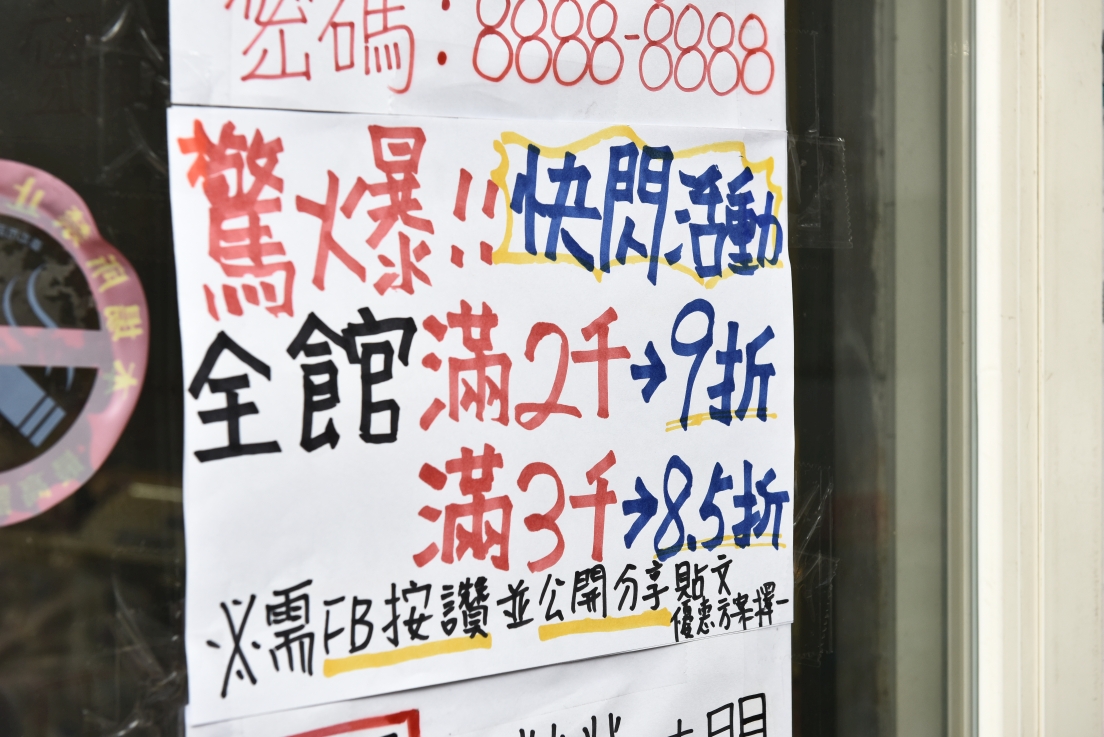 密碼：8888-8888
驚爆!! 快閃活動
全館滿2千→9折
滿3千→8.5折
※需FB按讚並公開分享貼文
優惠方案擇一